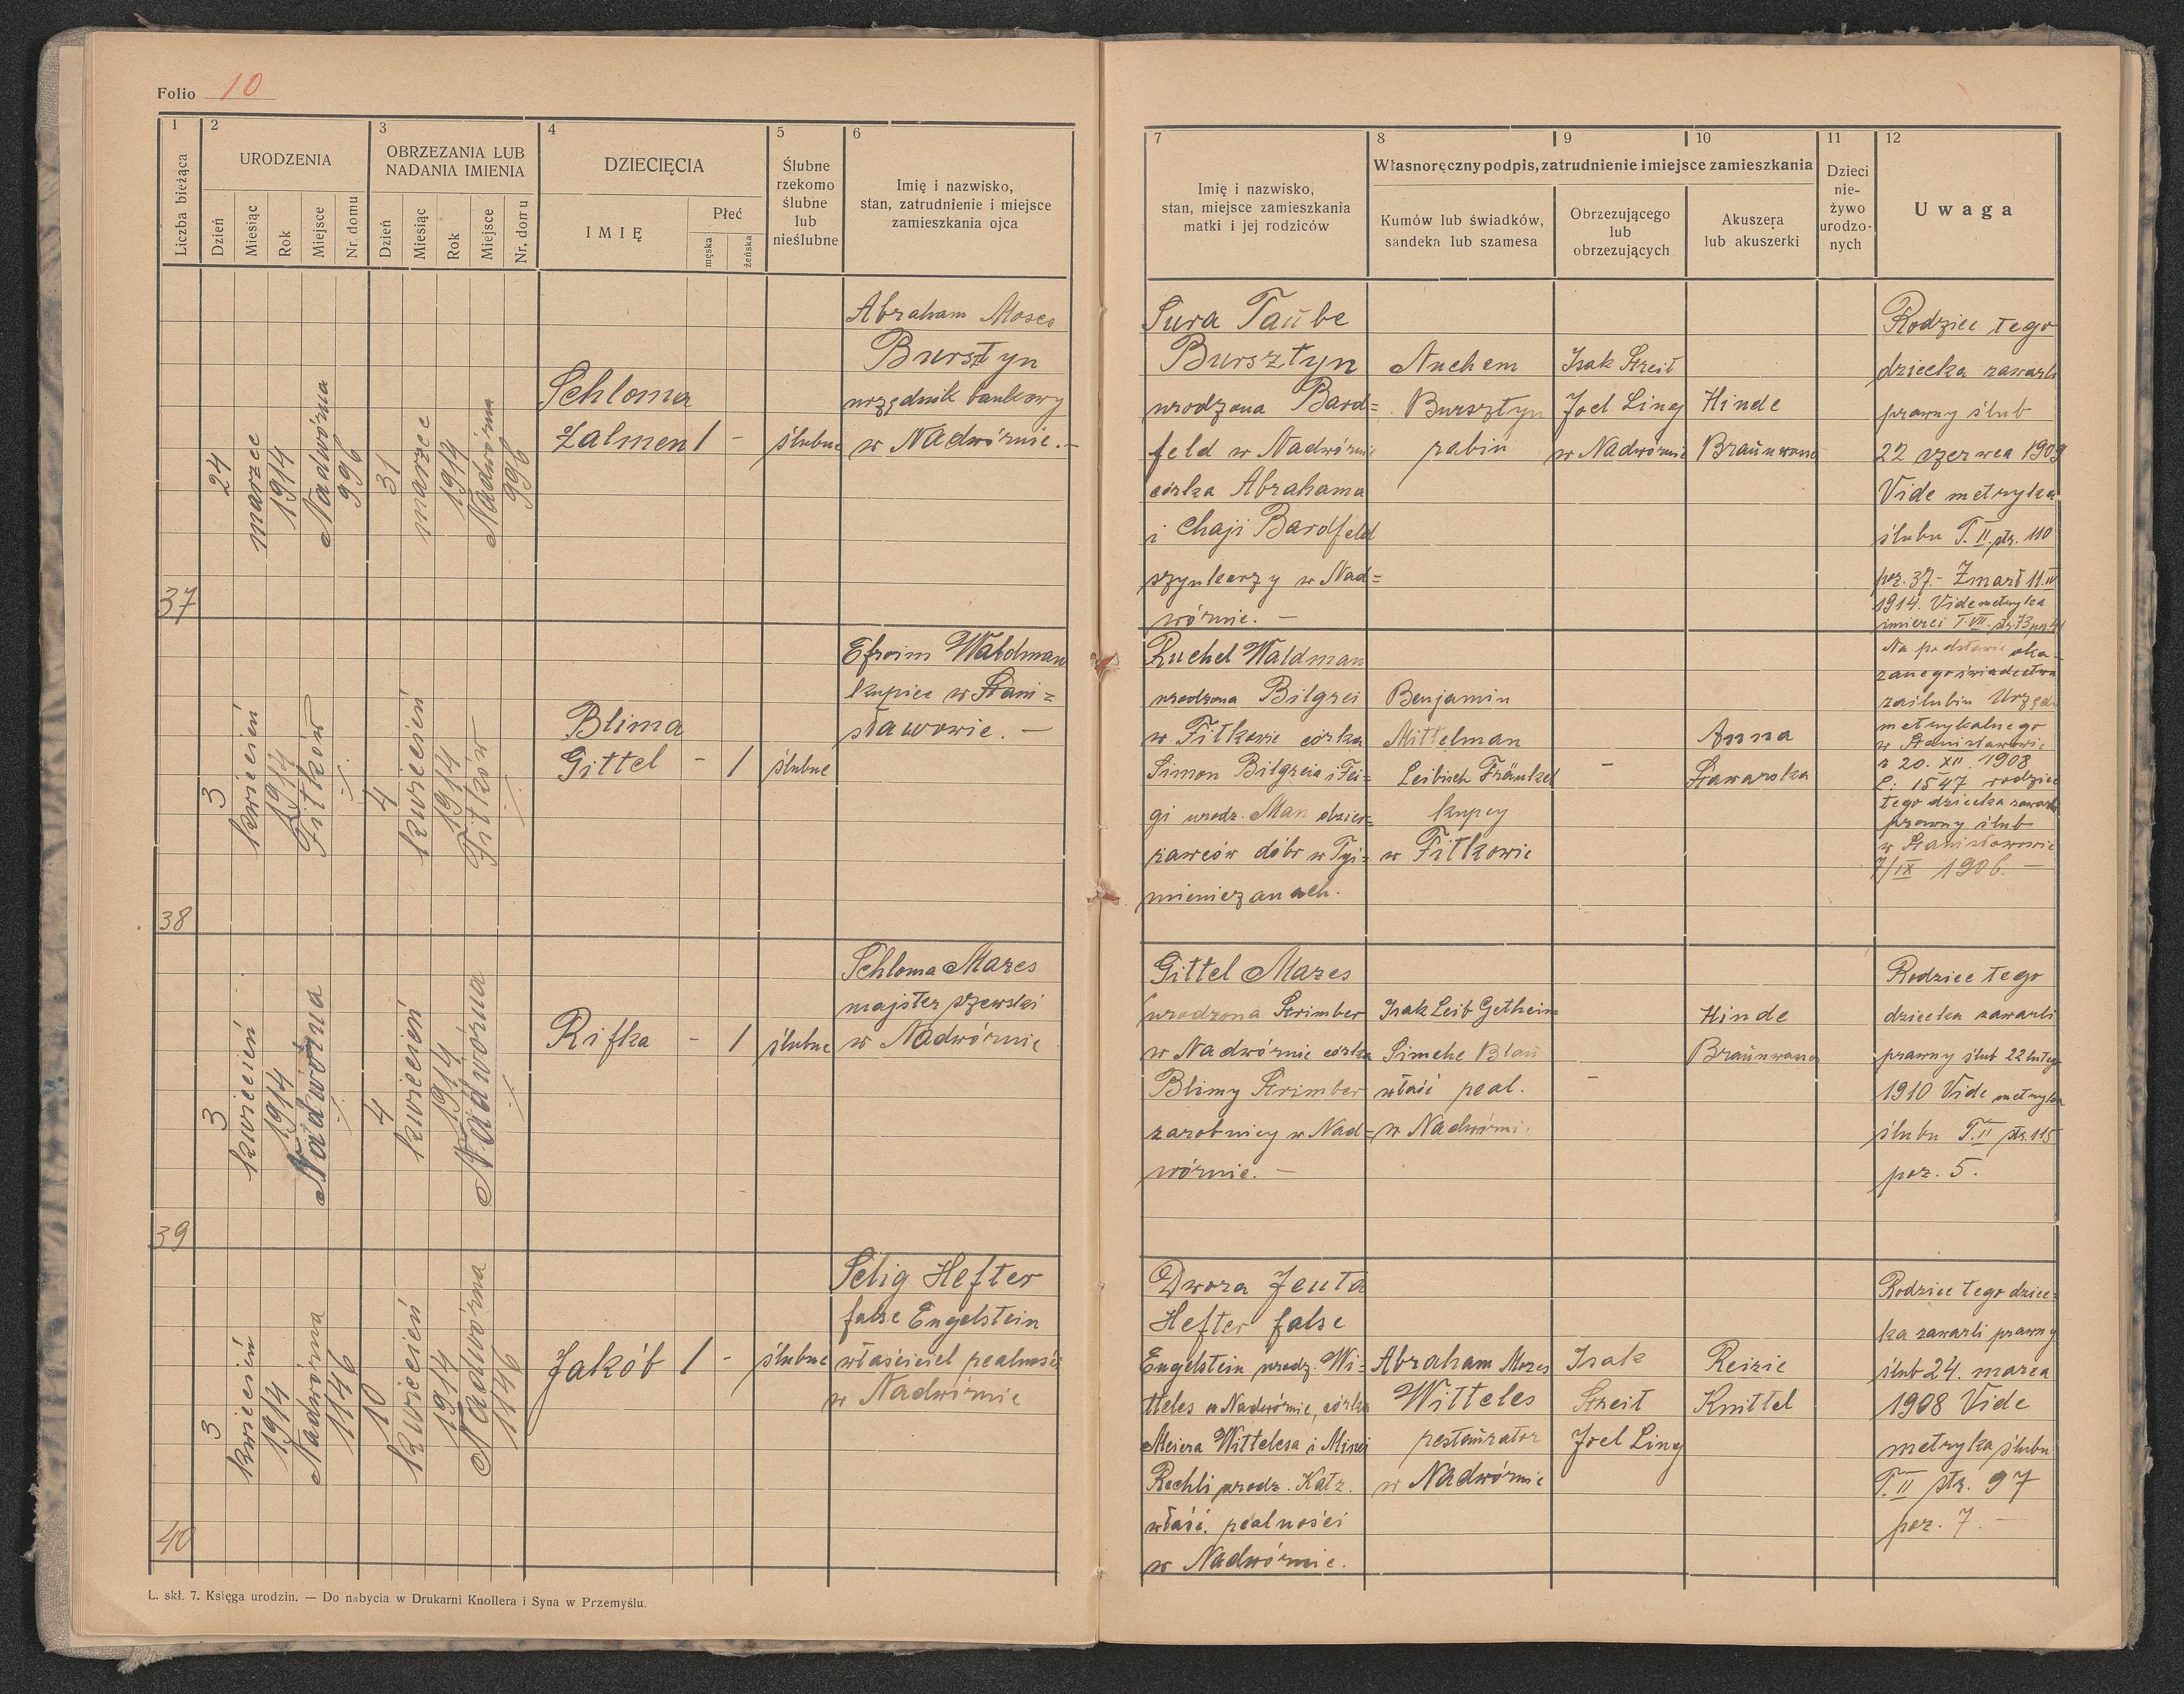 Folio 10
1
2
3
4
5
6
Liczba bieżąca
URODZENIA
Dzień
Miesiąc
Rok
Miejsce
Nr. domu
OBRZEZANIA LUB
NADANIA IMIENIA
Dzień
Miesiąc
Rok
Miejsce
Nr. domu
DZIECIĘCIA
IMIĘ
Płeć
męska
żeńska
Ślubne
rzekomo
ślubne
lub
nieślubne
Imię i nazwisko,
stan, zatrudnienie i miejsce
zamieszkania ojca
7
8
9
10
11
12
Imię i nazwisko,
stan, miejsce zamieszkania
matki i jej rodziców
Własnoręczny podpis, zatrudnienie i miejsce zamieszkania
Kumów lub świadków,
sandeka lub szamesa
Obrzezującego
lub
obrzezujących
Akuszera
lub akuszerki
Dzieci
nie-
żywo
urodzo-
nych
Uwaga
37
24
marzec
1914
Nadwórna
996
31
marzec
1914
Nadwórna
996
Schloma
Zalmen
1
-
ślubne
Abraham Moses
Bursztyn
urzędnik bankowy
w Nadwórnie.-
Sura Taube
Bursztyn
urodzona Bard=
feld w Nadwórnie
córka Abrahama
i Chaji Bardfeld
szynkarzy w Nad=
wórnie. -
Nuchem
Bursztyn
rabin
Isak Streit
Joel Ling
w Nadwórnie
Hinde
Braunwand
Rodzice tego
dziecka zawarli
prawny ślub
22 czerwca 1909
Vide metryka
ślubu T. II. str. 110
poz. 37.- Zmarł 11.IV
1914. Vide metryka
śmierci T. VII. str. 73 poz. 41
38
3
kwiecień
1914
Fitków
./.
4
kwiecień
1914
Fitków
./.
Blima
Gittel
-
1
ślubne
Efroim Waldman
kupiec w Stani=
sławowie. -
Ruchel Waldman
urodzona Bilgrei
w Fitkowie córka
Simon Bilgreia i Fei=
gi urodz. Man dzier=
żawców dóbr w Tyś=
mieniczanach.
Benjamin
Mittelman
Leibisch Fränkel
kupcy
w Fitkowie
-
Anna
Stawarska
Na podstawie oka-
zanego świadectwa
zaślubin Urzędu
metrykalnego
w Stanisławowie
z 20. XII. 1908
L: 1547 rodzice
tego dziecka zawarli
prawny ślub
w Stanisławowie
7/IX 1906. -
39
3
kwiecień
1914
Nadwórna
./.
4
kwiecień
1914
Nadwórna
./.
Rifka
-
1
ślubne
Schloma Mazes
majster szewski
w Nadwórnie
Gittel Mazes
urodzona Strimber
w Nadwórnie córka
Blimy Strimber
zarobnicy w Nad=
wórnie. -
Isak Leib Getheim
Simche Blau
właść real.
w Nadwórnie
-
Hinde
Braunwand
Rodzice tego
dziecka zawarli
prawny ślub 22 lutego
1910 Vide metryka
ślubu T. II str. 115
poz. 5.
40
3
kwiecień
1914
Nadwórna
1146
10
kwiecień
1914
Nadwórna
1146
Jakób
1
-
ślubne
Selig Hefter
false Engelstein
właściciel realności
w Nadwórnie
Dwora Jenta
Hefter false
Engelstein urodz. Wi=
tteles w Nadwórnie, córka
Meiera Wittelesa i Minci
Rechli urodz. Katz.
właść. realności
w Nadwórnie.
Abraham Mozes
Witteles
restaurator
w Nadwórnie
Isak
Streit
Joel Ling
Reizie
Knittel
Rodzice tego dziec=
ka zawarli prawny
ślub 24. marca
1908 Vide
metryka ślubu
T. II str. 97
poz. 7. -
L. skł. 7. Księga urodzin. — Do nabycia w Drukarni Knollera i Syna w Przemyślu.